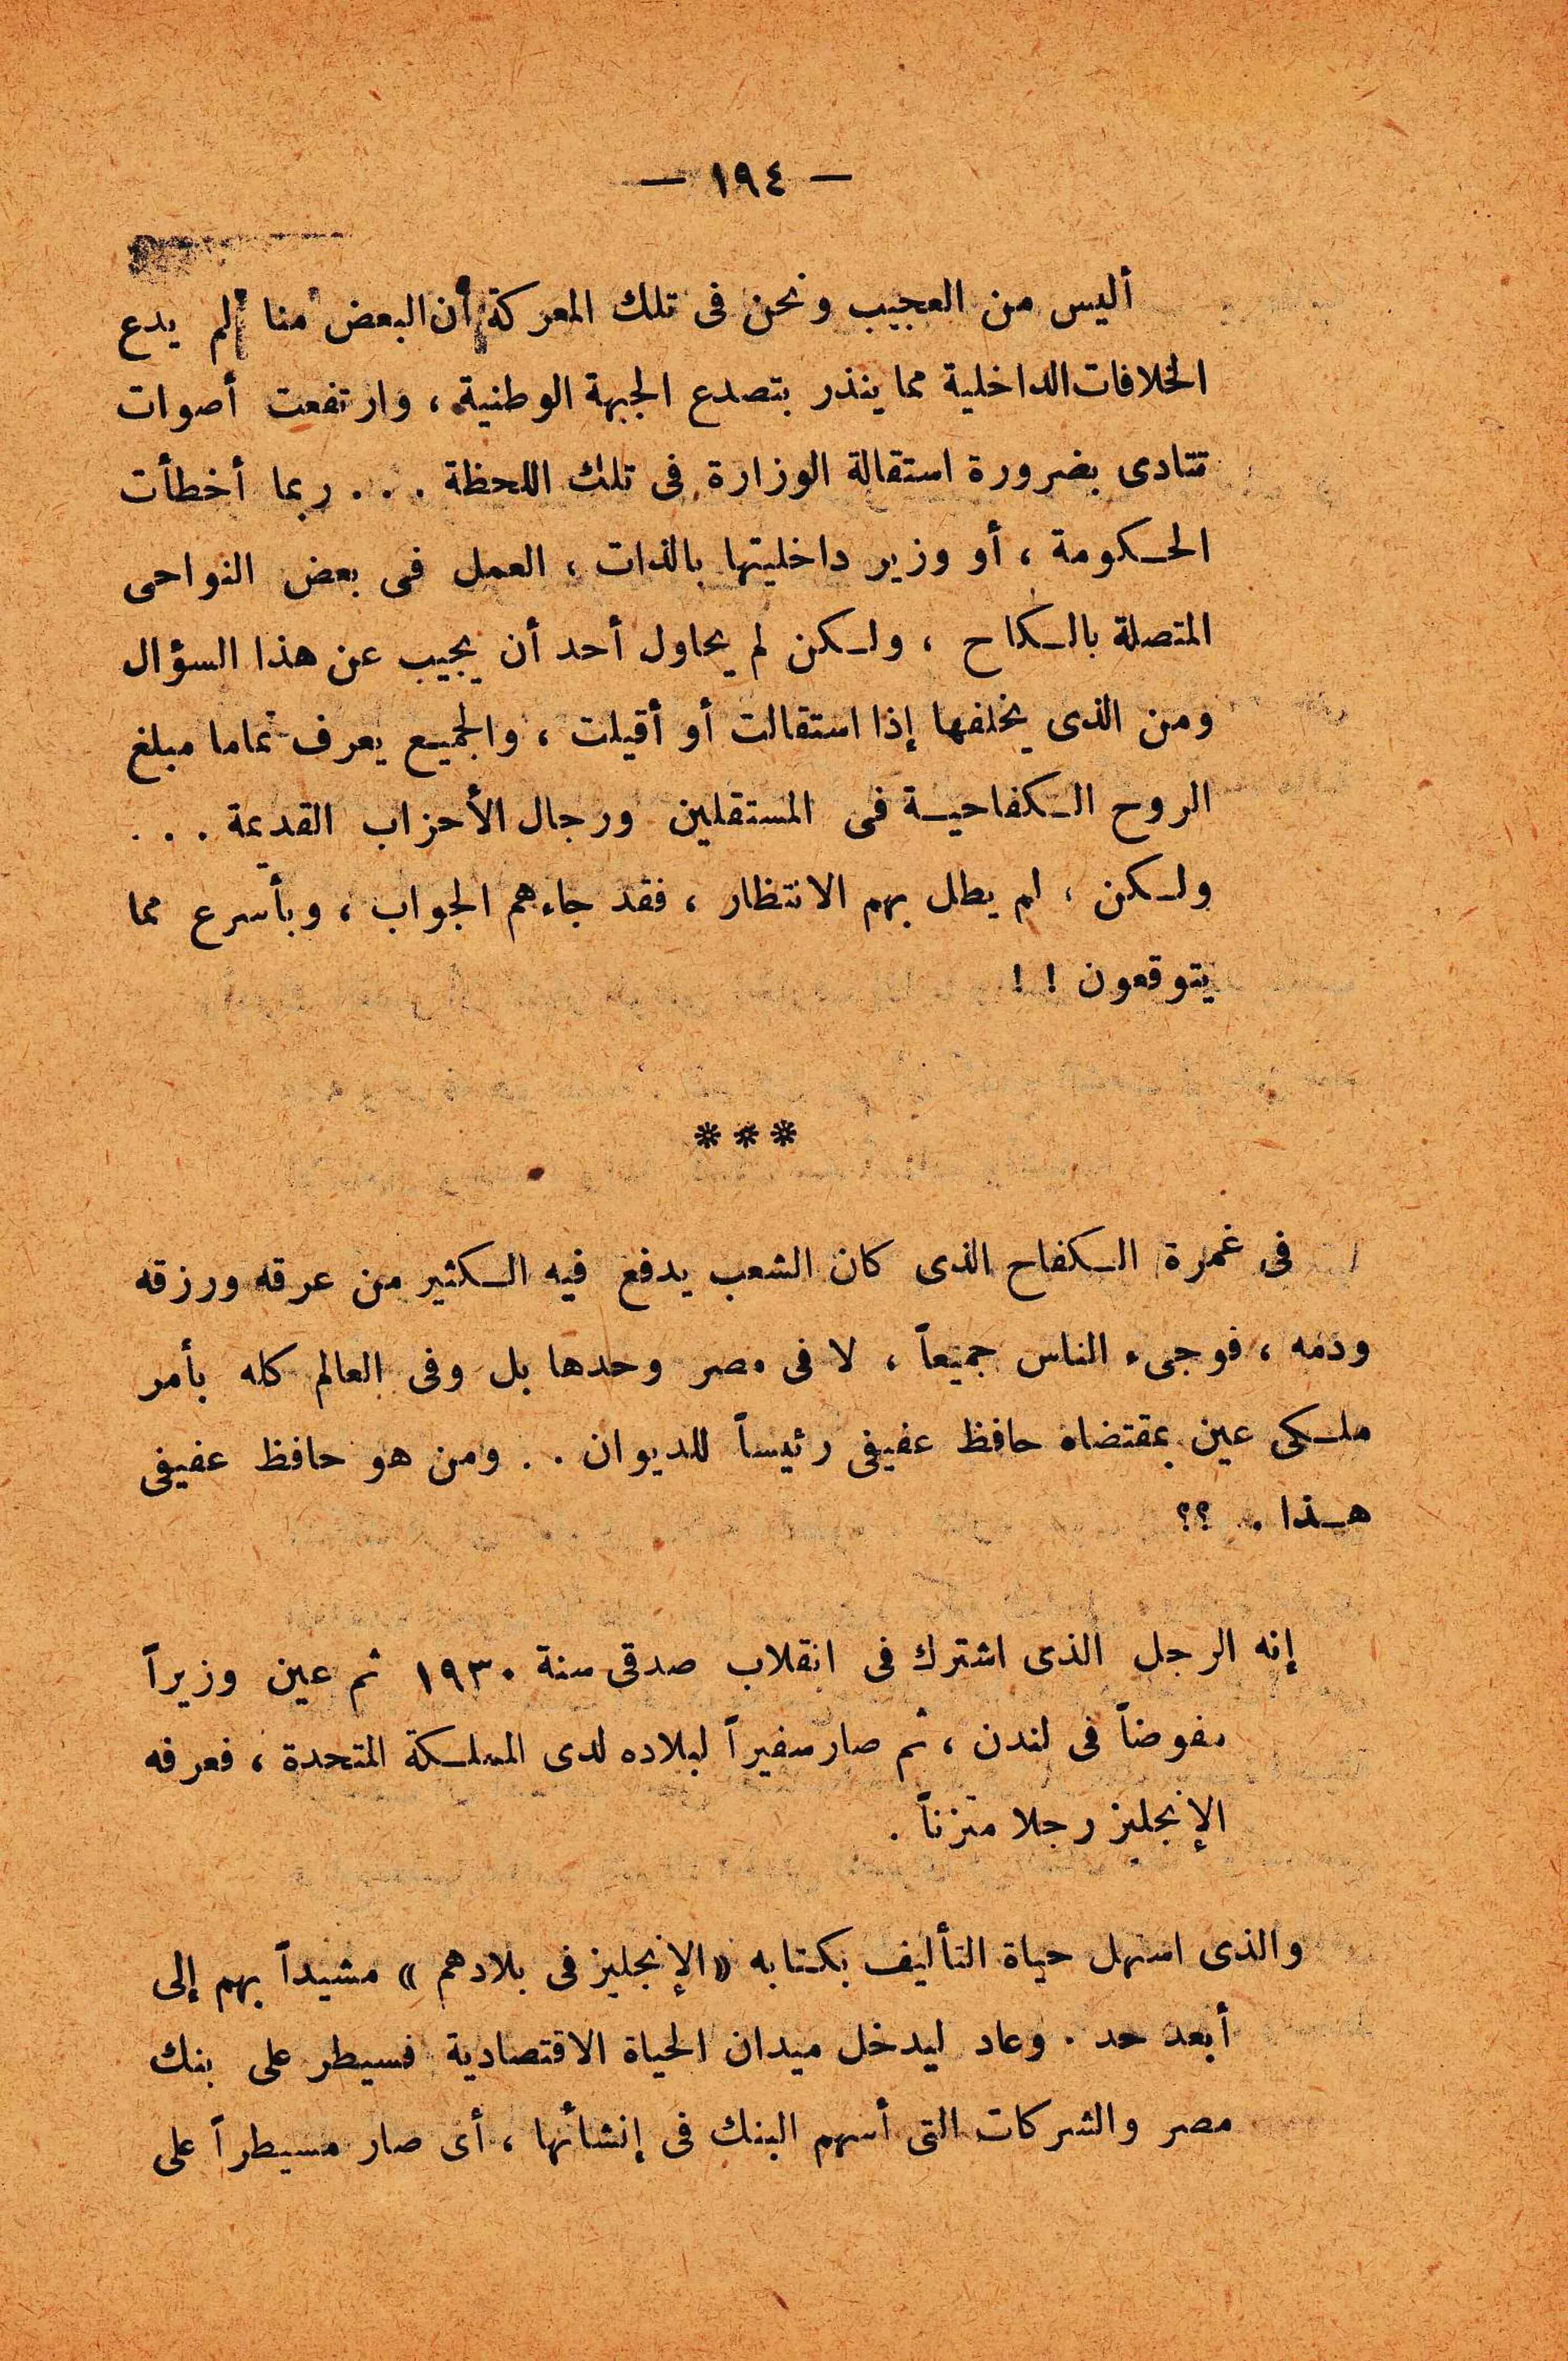 — ١٩٤ —
أليس من العجيب ونحن فى تلك المعركة أن البعض منا لم يدع
الخلافات الداخلية مما ينذر بتصدع الجبهة الوطنية ، وارتفعت أصوات
تتادى بضرورة استقالة الوزارة فى تلك اللحظة . . . ربما أخطأت
الحكومة ، أو وزير داخليتها بالذات ، العمل فى بعض النواحى
المتصلة بالكاح ، ولكن لم يحاول أحد أن يجيب عن هذا السؤال
ومن الذى يخلفها إذا استقالت أو أقيلت ، والجميع يعرف تماما مبلغ
الروح الكفاحية فى المستقلين ورجال الأحزاب القديمة . . .
ولكن ، لم يطل بهم الانتظار ، فقد جاءهم الجواب ، وبأسرع مما
يتوقعون ! !
***
فى غمرة الكفاح الذى كان الشعب يدفع فيه الكثير من عرقه ورزقه
ودمه ، فوجىء الناس جميعاً ، لا فى مصر وحدها بل وفى العالم كله بأمر
ملكى عين بمقتضاه حافظ عفيفى رئيساً للديوان . . ومن هو حافظ عفيفى
هذا . . ؟؟
إنه الرجل الذى اشترك فى انقلاب صدقى سنة ١٩٣٠ ثم عين وزيراً
مفوضاً فى لندن ، ثم صار سفيراً لبلاده لدى المملكة المتحدة ، فعرفه
الإنجليز رجلا متزناً .
والذى استهل حياة التأليف بكتابه « الإنجليز فى بلادهم » مشيداً بهم إلى
أبعد حد . وعاد ليدخل ميدان الحياة الاقتصادية فسيطر على بنك
مصر والشركات التى أسهم البنك فى إنشائها ، أى صار مسيطراً على